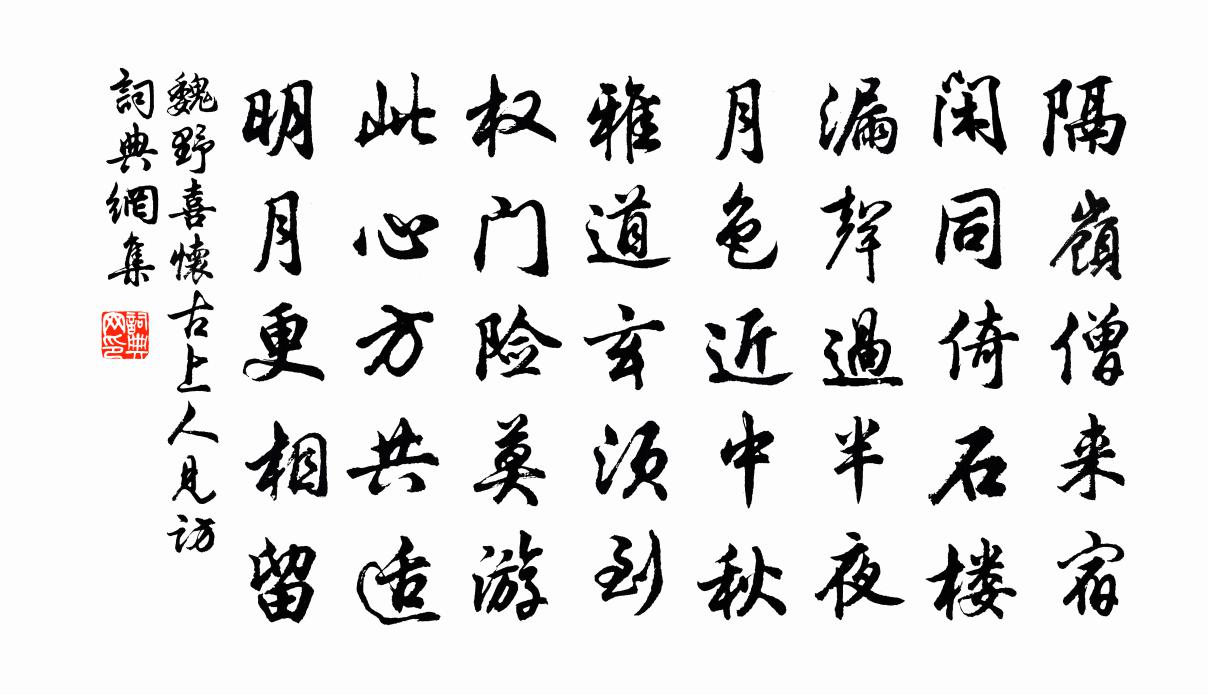 隔嶺僧来宿
闲同倚石楼
漏聲過半夜
月色近中秋
雅道玄须到
权门险莫游
此心方共适
明月更相留
魏野喜懷古上人見訪
詞典網集
詞典网印